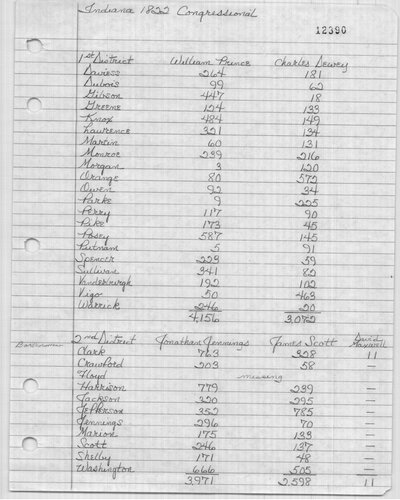 Indiana 1822 Congressional
12390
1st District William Prince Charles Dewey
Daviess 264 181
Dubois 99 62
Gibson 447 18
Greene 124 133
Knox 484 149
Lawrence 321 134
Martin 60 131
Monroe 239 216
Morgan 3 120
Orange 80 572
Owen 92 34
Parke 9 225
Perry 117 90
Pike 173 45
Posey 587 145
Putnam 5 91
Spencer 223 59
Sullivan 341 82
Vanderburgh 192 102
Vigo 50 463
Warrick 246 20
4,156 3,072
2nd District Jonathan Jennings James Scott David Maxwell
Clark 763 328 11
Crawford 203 58 —
Floyd missing
Harrison 779 239 —
Jackson 320 295 —
Jefferson 352 785 —
Jennings 296 70 —
Marion 175 133 —
Scott 246 137 —
Shelby 171 48 —
Washington 666 505 —
3,971 2,598 11